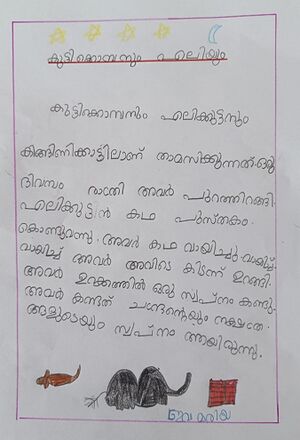 കുട്ടിക്കൊമ്പനും എലിയും
കുട്ടിക്കൊമ്പനും എലിക്കുട്ടനും
കിങ്ങിണിക്കാട്ടിലാണ് താമസിക്കുന്നത്. ഒരു
ദിവസം രാത്രി അവർ പുറത്തിറങ്ങി.
എലിക്കുട്ടൻ കഥ പുസ്തകം.
കൊണ്ടുവന്നു. അവർ കഥ വായിച്ചു. വായിച്ച്
വായിച്ച് അവർ അവിടെ കിടന്ന് ഉറങ്ങി.
അവർ ഉറക്കത്തിൽ ഒരു സ്വപ്നം കണ്ടു.
അവർ കണ്ടത് ചന്ദ്രന്റെയും നക്ഷത്ര.
ങ്ങളുടെയും സ്വപ്നം ആയിരുന്നു.
ഇവ മരിയ